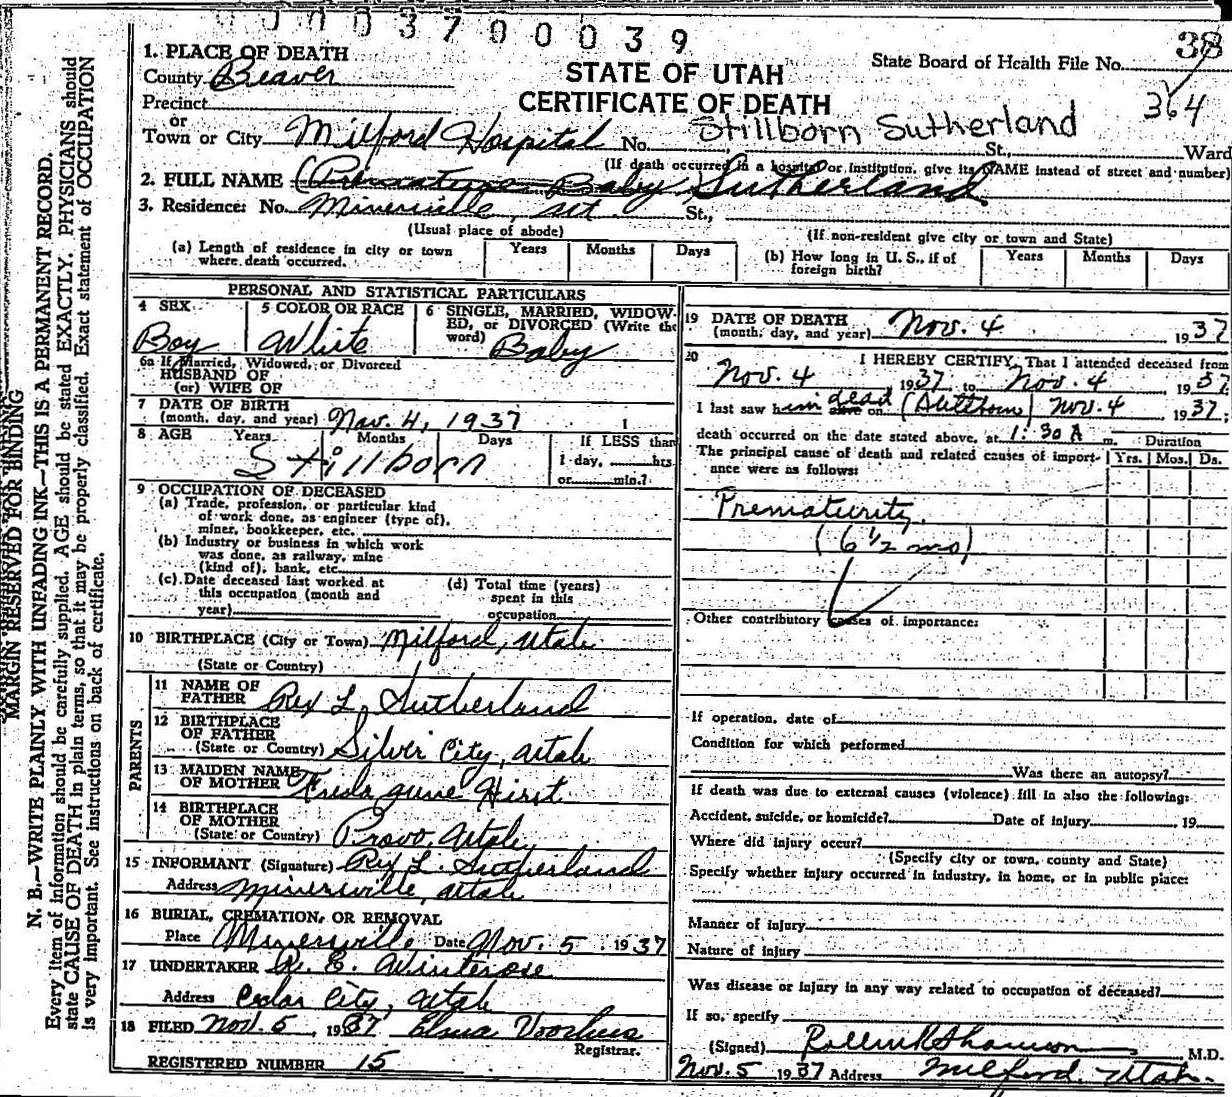 0003700039
38
364
State Board of Health File No.
STATE OF UTAH
CERTIFICATE OF DEATH
1. PLACE OF DEATH
County Beaver
Precinct
or
Town or City Milford Hospital No. Stillborn Sutherland St., Ward
(If death occurred in a hospital or institution, give its NAME instead of street and number)
2. FULL NAME (Premature Baby) Sutherland
3. Residence: No. Minersville, Ut. St.,
(Usual place of abode) (If non-resident give city or town and State)
(a) Length of residence in city or town where death occurred. Years Months Days
(b) How long in U. S., if of foreign birth? Years Months Days
PERSONAL AND STATISTICAL PARTICULARS
4 SEX Boy
5 COLOR OR RACE White
6 SINGLE, MARRIED, WIDOWED, or DIVORCED (Write the word) Baby
6a If Married, Widowed, or Divorced
HUSBAND OF
(or) WIFE OF
7 DATE OF BIRTH
(month, day, and year) Nov. 4, 1937
8 AGE Years Months Days If LESS than
1 day, hrs
or min.?
Stillborn
9 OCCUPATION OF DECEASED
(a) Trade, profession, or particular kind
of work done, as engineer (type of),
miner, bookkeeper, etc.
(b) Industry or business in which work
was done, as railway, mine
(kind of), bank, etc.
(c) Date deceased last worked at
this occupation (month and
year)
(d) Total time (years)
spent in this
occupation
10 BIRTHPLACE (City or Town) Milford, Utah
(State or Country)
PARENTS
11 NAME OF
FATHER Rex L. Sutherland
12 BIRTHPLACE
OF FATHER
(State or Country) Silver City, Utah
13 MAIDEN NAME
OF MOTHER June Hirst
14 BIRTHPLACE
OF MOTHER
(State or Country) Provo, Utah
15 INFORMANT (Signature) Rex L. Sutherland
Address Minersville, Utah
16 BURIAL, CREMATION, OR REMOVAL
Place Minersville Date Nov. 5 1937
17 UNDERTAKER R. E. Winterose
Address Cedar City, Utah
18 FILED Nov. 5, 1937 Elma Voorhees
Registrar.
REGISTERED NUMBER 15
19 DATE OF DEATH
(month, day, and year) Nov. 4 1937
20 I HEREBY CERTIFY, That I attended deceased from
Nov. 4, 1937 to Nov. 4 1937
I last saw him dead alive on (Stillborn) Nov. 4 1937,
death occurred on the date stated above, at 1:30 A m. Duration
The principal cause of death and related causes of importance were as follows: Yrs. Mos. Ds.
Prematurity.
(6 1/2 mo)
Other contributory causes of importance:
If operation, date of
Condition for which performed
Was there an autopsy?
If death was due to external causes (violence) fill in also the following:
Accident, suicide, or homicide? Date of injury 19
Where did injury occur?
(Specify city or town, county and State)
Specify whether injury occurred in industry, in home, or in public place:
Manner of injury
Nature of injury
Was disease or injury in any way related to occupation of deceased?
If so, specify
(Signed) M.D.
Nov. 5 1937 Address Milford, Utah.
MARGIN RESERVED FOR BINDING
N. B.—WRITE PLAINLY WITH UNFADING INK—THIS IS A PERMANENT RECORD.
Every item of information should be carefully supplied. AGE should be stated EXACTLY. PHYSICIANS should
state CAUSE OF DEATH in plain terms, so that it may be properly classified. Exact statement of OCCUPATION
is very important. See instructions on back of certificate.